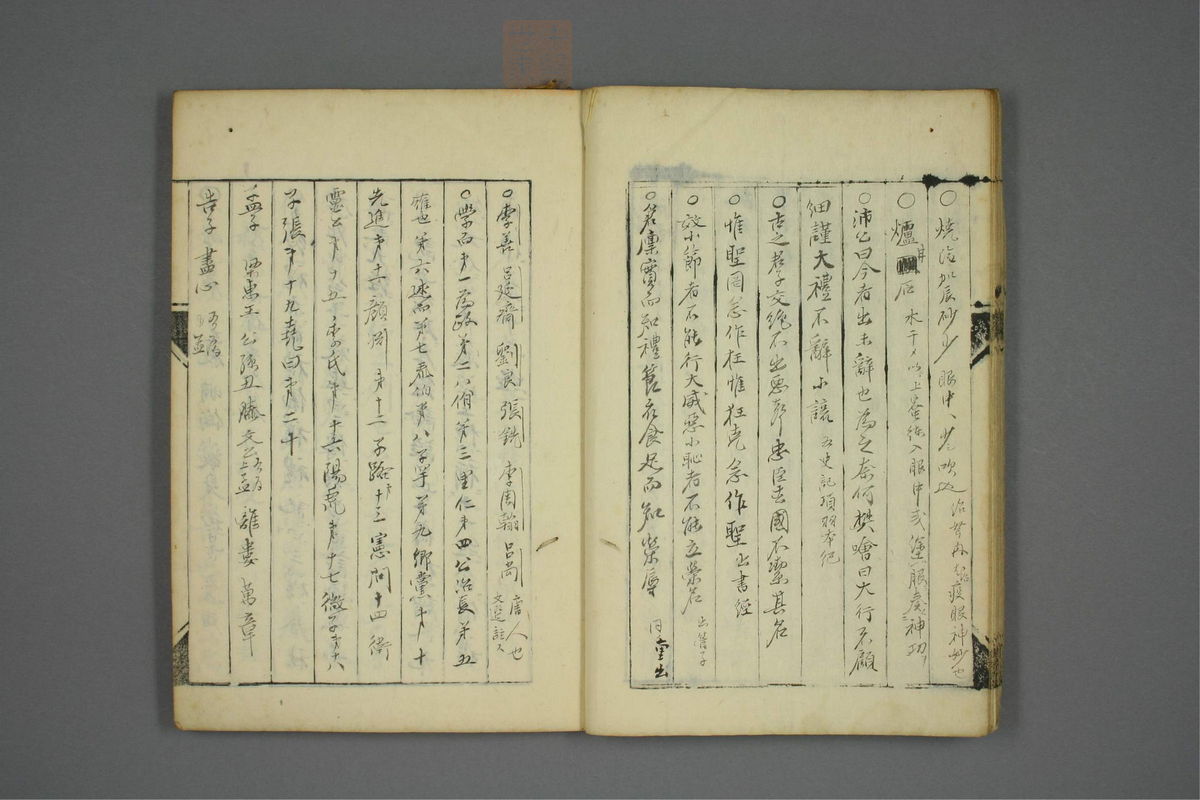 ○燒 加辰砂少 眼中
○爐 石 水 以上 練入眼中或塗眼 神功
○沛公曰今者出未辭也為之奈何樊噲曰大行不顧
細謹大禮不辭小讓 史記項羽本紀
○古之君子交絶不出惡声忠臣去國不潔其名
○惟聖罔念作狂惟狂克念作聖 出書經
○效小節者不能行大威惡小恥者不能立榮名 出管子
○倉廩實而知禮節衣食足而知榮辱 同書出
○李善 呂延濟 劉良 張銑 李周翰 呂向 唐人也 文選註人
○學而第一為政第二八佾第三里仁第四公冶長第五
雍也第六述而第七泰伯第八子罕第九鄉黨第十
先進第十一顏淵第十二子路第十三憲問十四衛
靈公第十五季氏第十六陽貨第十七微子第十八
子張第十九堯曰第二十
孟子 梁惠王 公孫丑 滕文公 離婁 萬章
告子 盡心